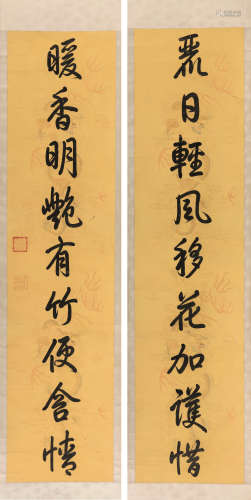 麗日輕風移花加護惜
暖香明艷有竹便含情